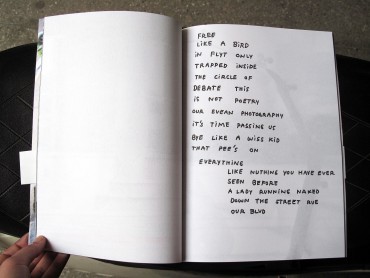 FREE
LIKE A BIRD
IN FLYT ONLY
TRAPPED INSIDE
THE CIRCLE OF
DEBATE THIS
IS NOT POETRY
OUR EVEAN PHOTOGRAPHY
IT'S TIME PASSING US
BYE LIKE A WISS KID
THAT PEE'S ON
EVERYTHING
LIKE NUTHING YOU HAVE EVER
SEEN BEFORE
A LADY RUNNING NAKED
DOWN THE STREET RUE
OUR BLVD